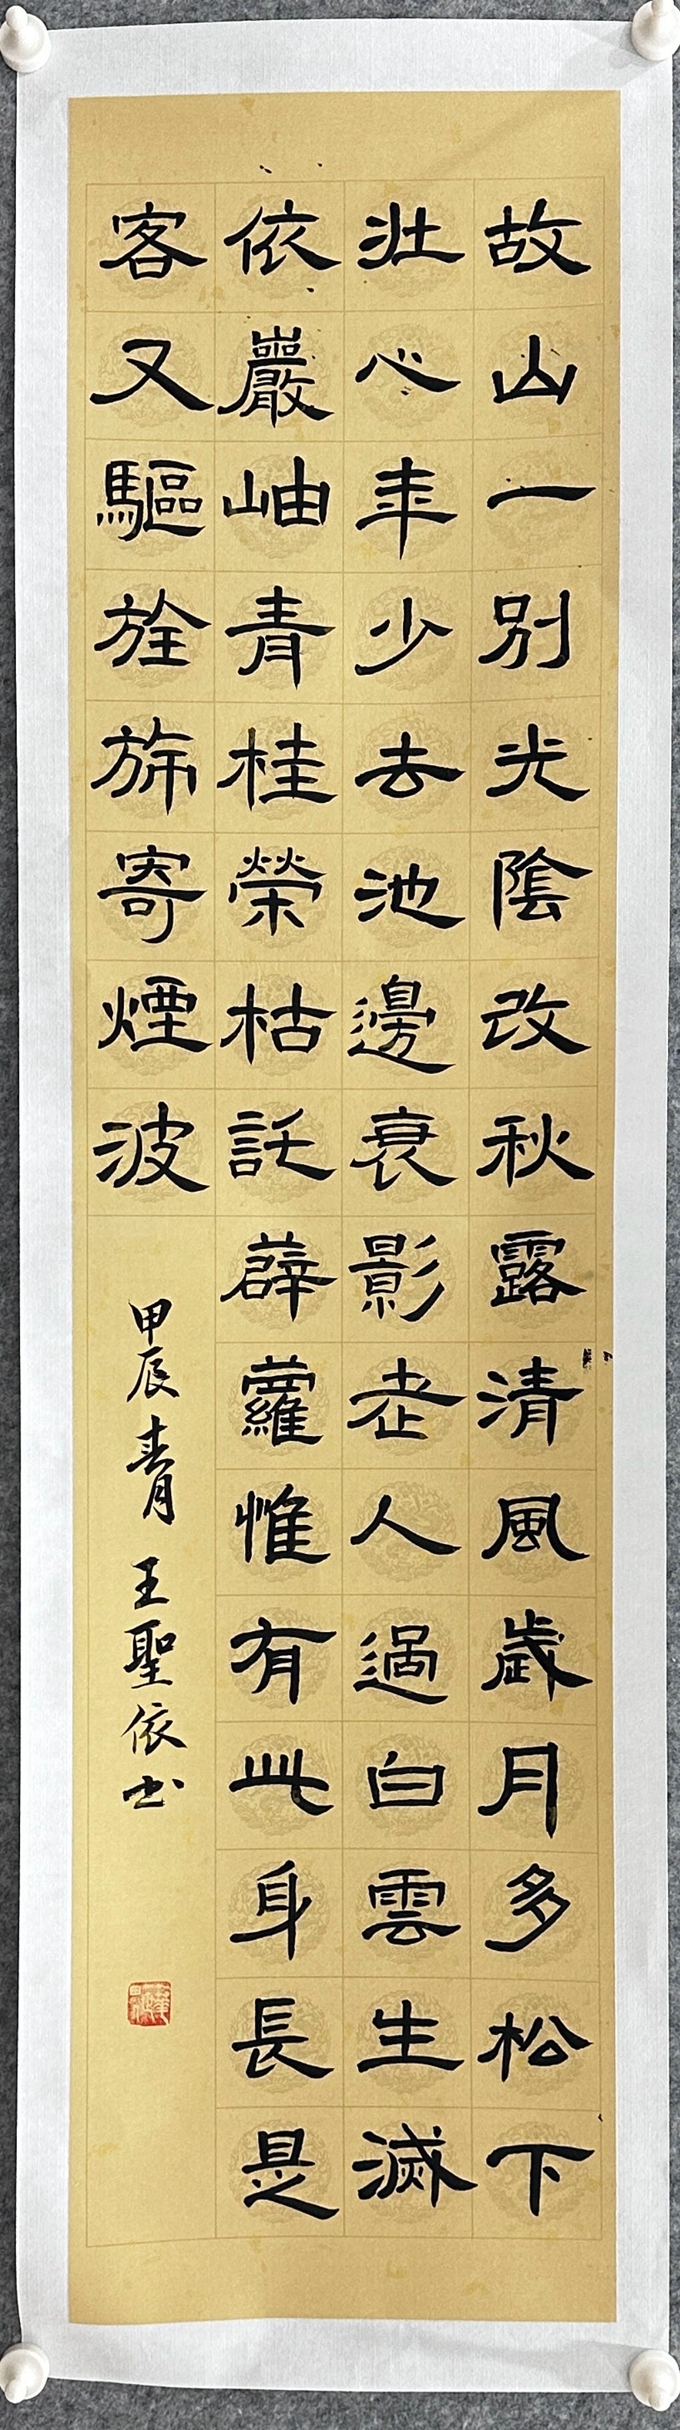 故山一別光陰改秋露清風歲月多松下
壯心年少去池邊衰影老人過白雲生滅
依巖岫青桂榮枯託薜蘿惟有此身長是
客又驅旌旆寄煙波
甲辰 青 王聖依书